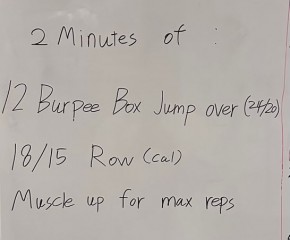 2 Minutes of :
12 Burpee Box Jump over (24/20)
18/15 Row (cal)
Muscle up for max reps